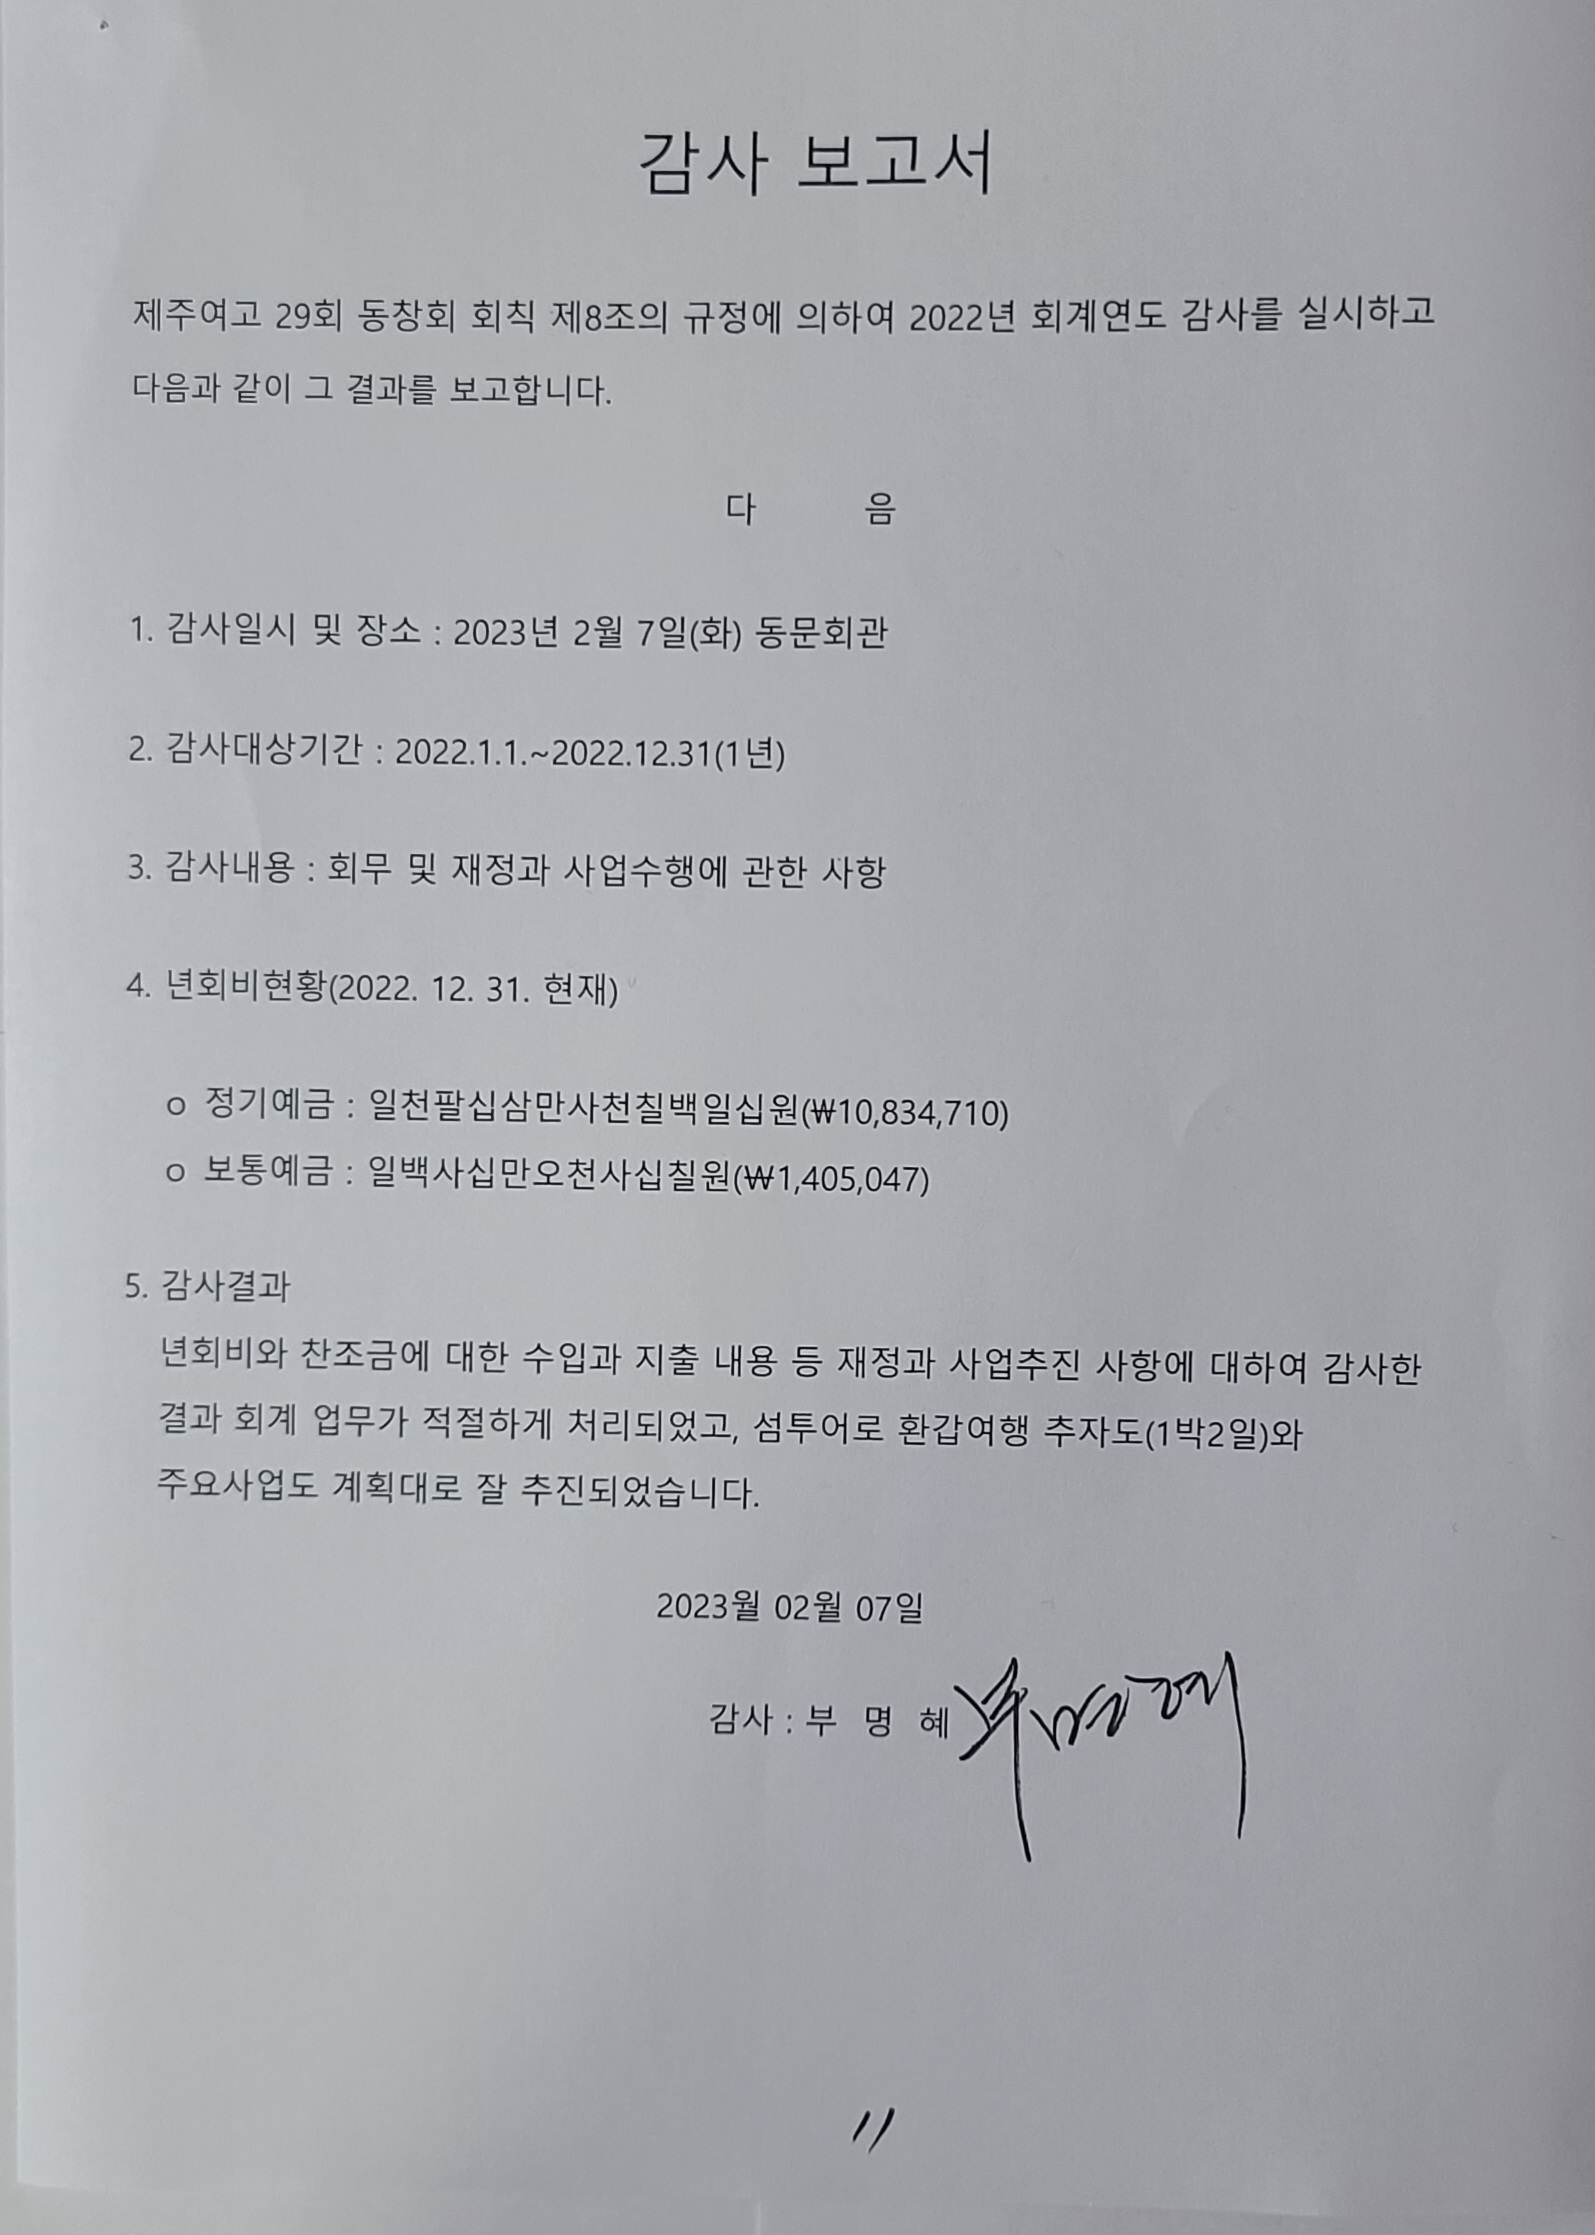 감사 보고서
제주여고 29회 동창회 회칙 제8조의 규정에 의하여 2022년 회계연도 감사를 실시하고
다음과 같이 그 결과를 보고합니다.
다 음
1. 감사일시 및 장소 : 2023년 2월 7일(화) 동문회관
2. 감사대상기간 : 2022.1.1.~2022.12.31(1년)
3. 감사내용 : 회무 및 재정과 사업수행에 관한 사항
4. 년회비현황(2022. 12. 31. 현재)
o 정기예금 : 일천팔십삼만사천칠백일십원(₩10,834,710)
o 보통예금 : 일백사십만오천사십칠원(₩1,405,047)
5. 감사결과
년회비와 찬조금에 대한 수입과 지출 내용 등 재정과 사업추진 사항에 대하여 감사한
결과 회계 업무가 적절하게 처리되었고, 섬투어로 환갑여행 추자도(1박2일)와
주요사업도 계획대로 잘 추진되었습니다.
2023월 02월 07일
감사 : 부 명 혜 부명혜
11